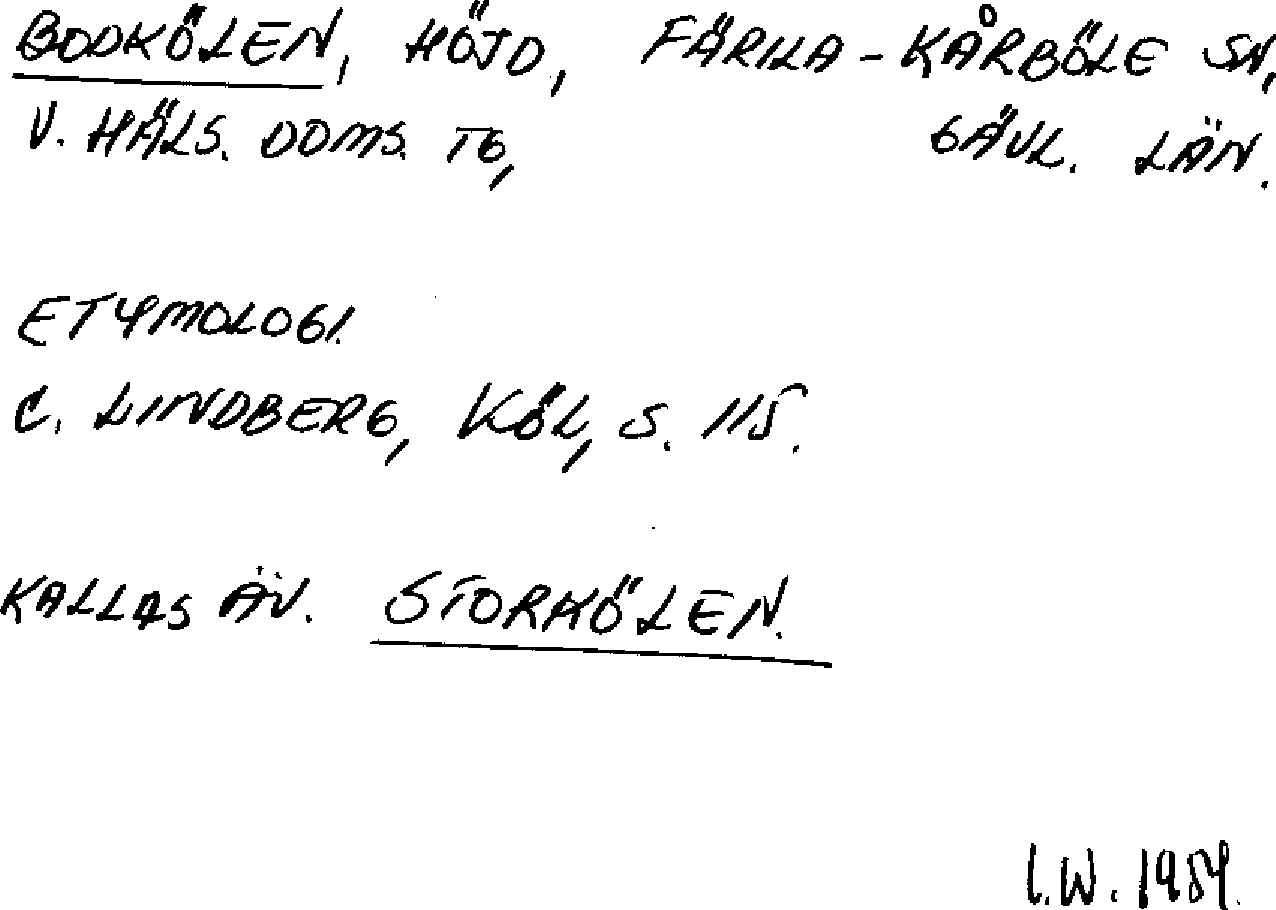 BODKÖLEN, HÖJD, FÄRILA-KÅRBÖLE SN,
V. HÄLS. DOMS. TG, GÄVL. LÄN.
ETYMOLOGI.
C. LINDBERG, KÖL, S. 115.
KALLAS ÄV. STORKÖLEN.
I.W. 1984.